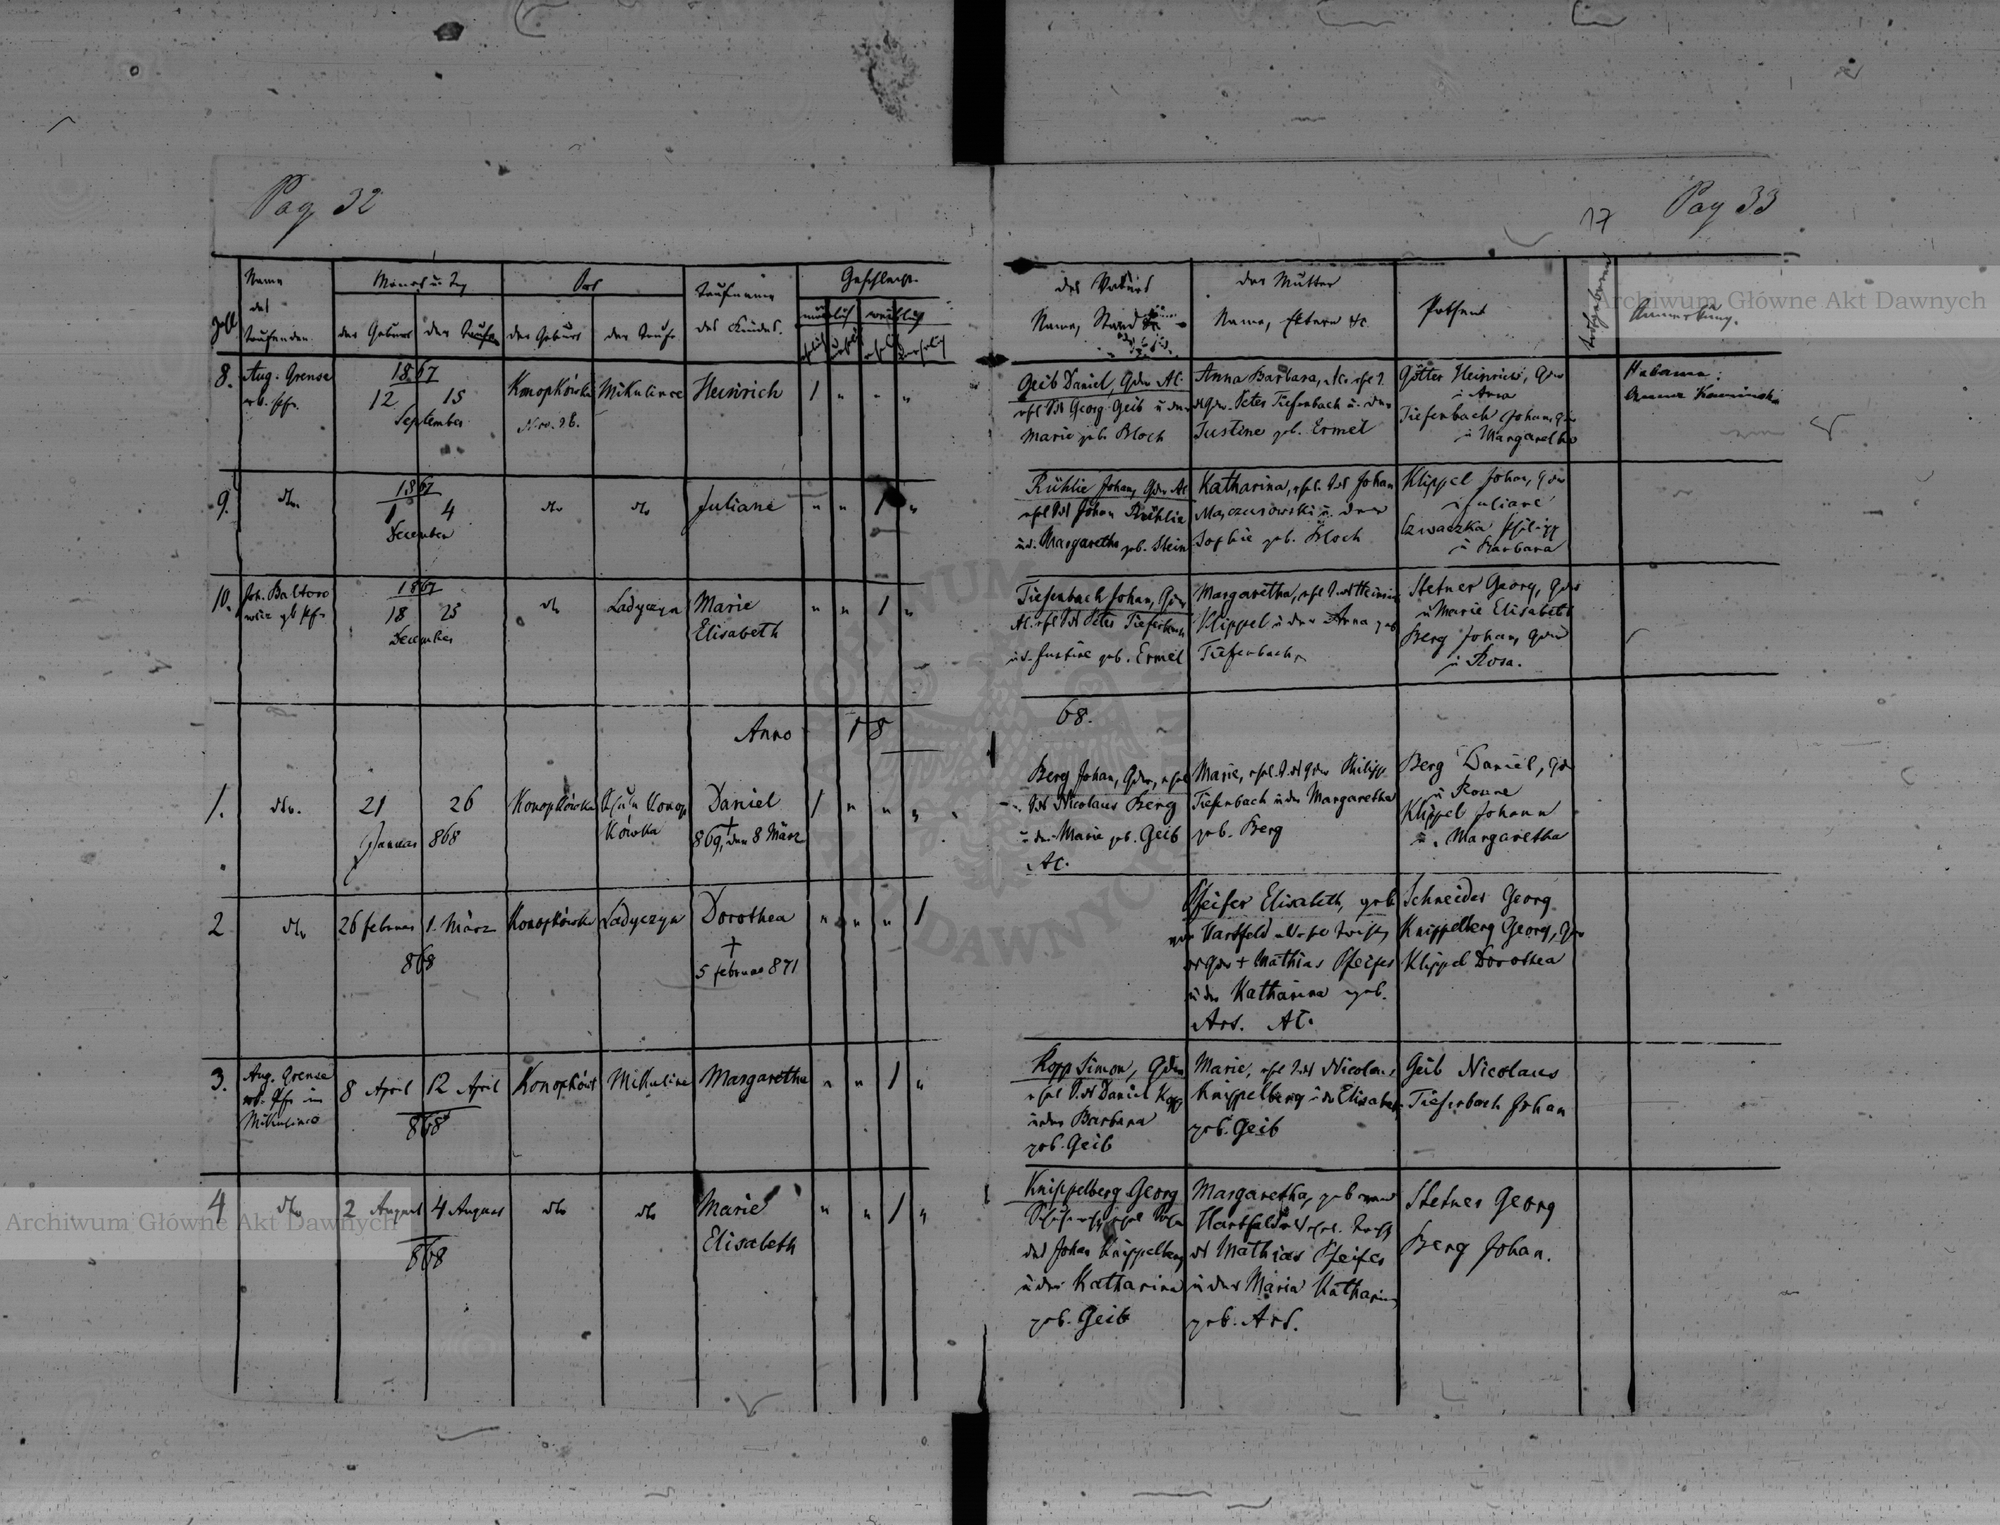 Pag 32
17
Pag 33
Zahl
Name
des
Taufenden
Monat u. Tag
der Geburt
der Taufe
Ort
der Geburt
der Taufe
Taufname
des Kindes.
Geschlecht.
männlich
weiblich
des Vaters
Name, Stand
der Mutter
Name, Eltern &c.
Pathen
Todtgeborne
Anmerkung.
8.
Aug. Grense
1867
12 15
September
Konopkówka
Nro. 28.
Mikulince
Heinrich
1 " " "
Geib Daniel, Gdw. AC.
ehl. Georg Geib u der
Marie geb. Bloch
Anna Barbara,
Peter Tiefenbach u. der
Justine geb. Ermel
Götter Heinrich, Gdw
u Anna
Tiefenbach Johann,
u Margaretha
Hebame:
Anna Kaminska
9.
dto
1867
1 4
December
dto
dto
Juliane
" " 1 "
Rühlie Johan, Gdw AC
Johan Rühlie
u d. Margaretha geb. Stein
Katharina, Johan
u. der
Sophie geb. Bloch
Klippel Johan, Gdw
u Juliane
Czwaczka Philipp
u Barbara
10.
Joh. Baltoro
1867
18 25
December
dto
Ladyczyn
Marie
Elisabeth
" " 1 "
Tiefenbach Johan, Gdw
AC. Peter Tiefenbach
u d. Justine geb. Ermel
Margaretha, Heinrich
Klippel u der Anna geb
Tiefenbach
Stetner Georg, Gdw
u Marie Elisabeth
Berg Johan, Gdw
u Rosa.
Anno 18
68.
1.
dto.
21 26
Januar 868
Konopkówka
Konop
kówka
Daniel
†
869, den 8 März
1 " " "
Berg Johan, Gdw,
Nicolaus Berg
u der Marie geb. Geib
AC.
Marie, Philipp
Tiefenbach u der Margaretha
geb. Berg
Berg Daniel, Gdw
u
Klippel Johann
u. Margaretha
2
dto
26 Februar 1. März
868
Konopkówka
Ladyczyn
Dorothea
†
5 Februar 871
" " " 1
Pfeifer Elisabeth, geb
Hartfeld
† Mathias Pfeifer
u der Katharina geb.
Ars. AC.
Schneider Georg
Knippelberg Georg, Gdw
Klippel Dorothea
3.
Aug. Grense
Pfr in
Mikulince
8 April 12 April
868
Konopkówk
Mikulince
Margaretha
" " 1 "
Kopp Simon, Gdw
Daniel Kopp
u der Barbara
geb. Geib
Marie, Nicolaus
Knippelberg u der Elisabeth
geb. Geib
Geib Nicolaus
Tiefenbach Johan
4
dto
2 August 4 August
868
dto
dto
Marie
Elisabeth
" " 1 "
Knippelberg Georg
des Johan Knippelberg
u der Katharina
geb. Geib
Margaretha, geb
Hartfeld
Mathias Pfeifer
u der Maria Katharina
geb. Ars.
Stetner Georg
Berg Johan.
Archiwum Główne Akt Dawnych
Archiwum Główne Akt Dawnych